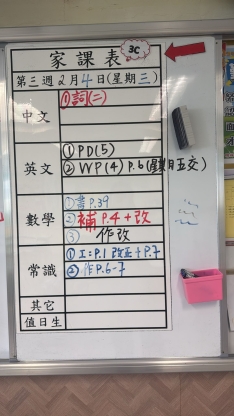 家課表
3C
第三週2月4日(星期三)
中文
①詞(二)
英文
①PD(5)
②WP(4) P.6(星期五交)
數學
①書P.39
②補P.4+改
③作改
常識
①工:P.1改正+P.7
②作P.6-7
其它
值日生